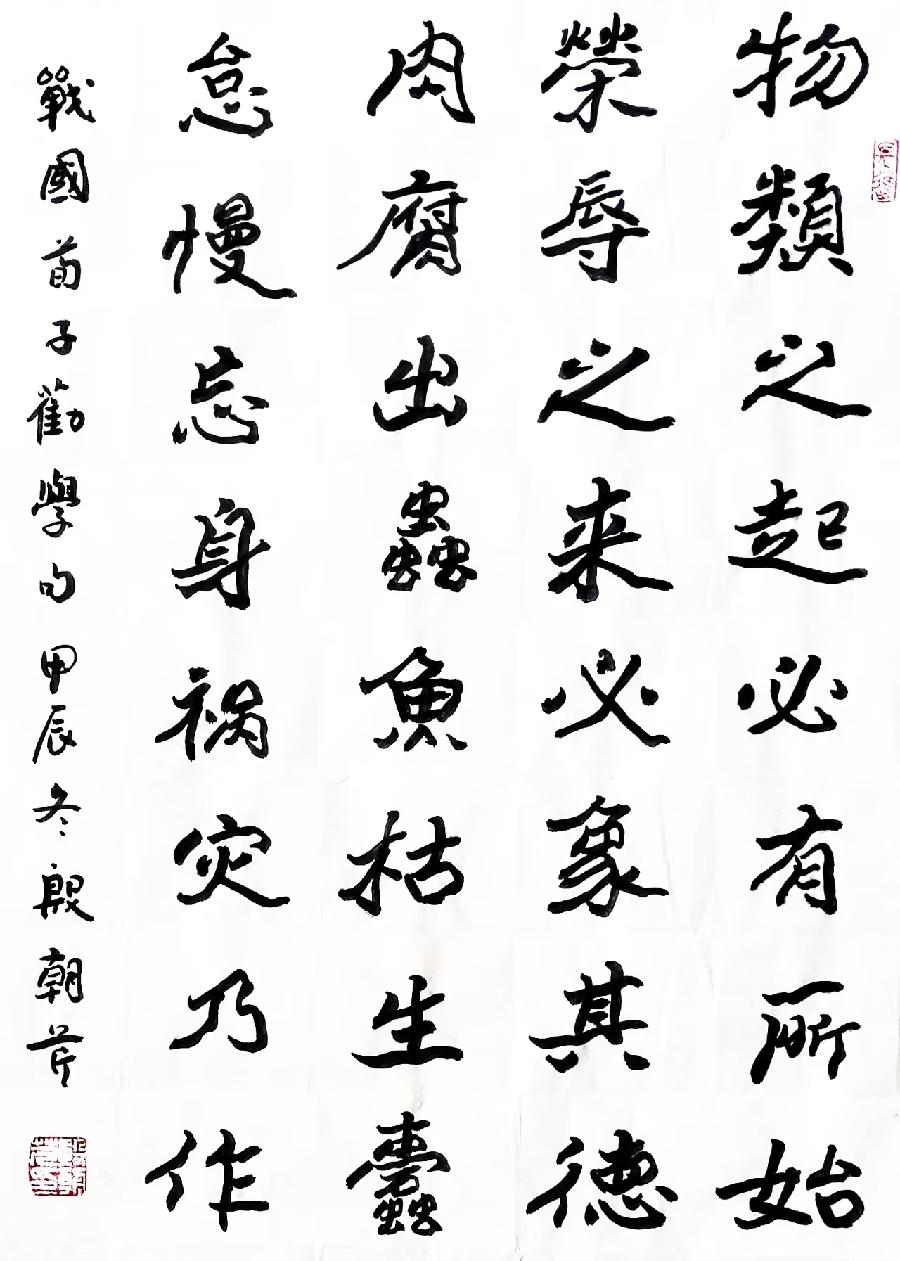 物類之起必有所始
榮辱之来必象其德
肉腐出蟲魚枯生蠹
怠慢忘身祸灾乃作
戰國荀子勸學句甲辰冬殷朝芹